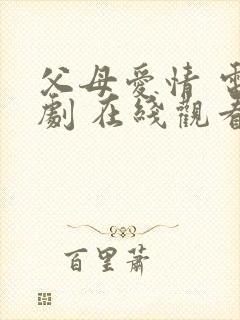 父母愛情 電
劇 在綫觀看
百里蕭